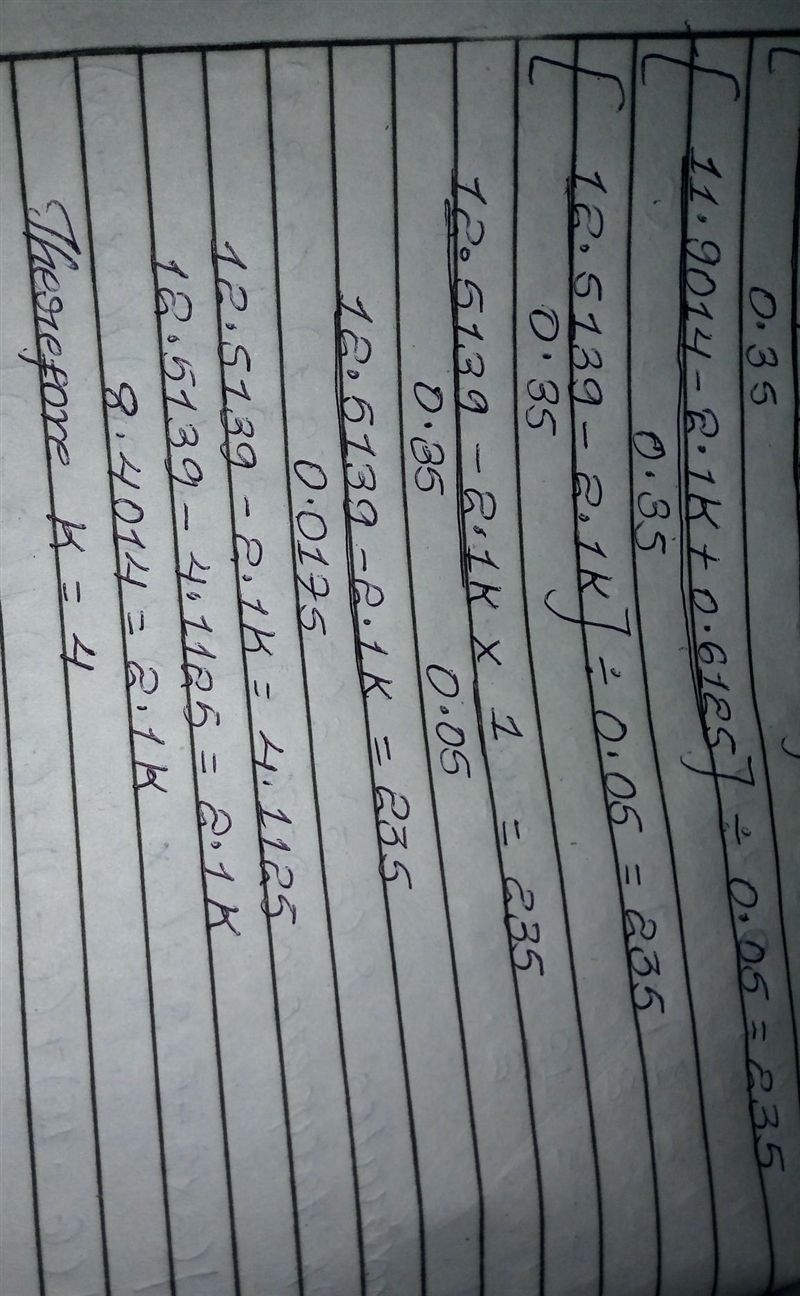 0.35
[ 11.9014 - 2.1K + 0.6125 ] ÷ 0.05 = 235
0.35
[ 12.5139 - 2.1K ] ÷ 0.05 = 235
0.35
12.5139 - 2.1K × 1 = 235
0.35 0.05
12.5139 - 2.1K = 235
0.0175
12.5139 - 2.1K = 4.1125
12.5139 - 4.1125 = 2.1K
8.4014 = 2.1K
Therefore K = 4